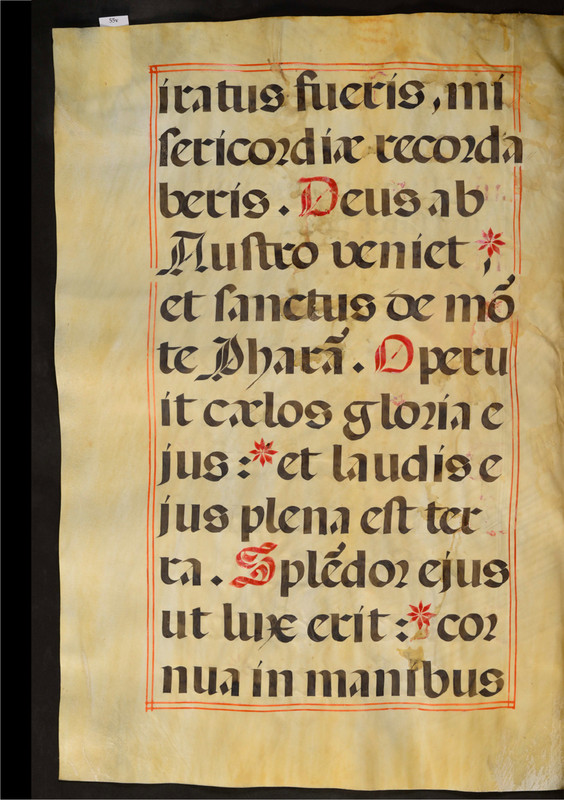 55v
iratus fueris, mi
sericordiæ recorda
beris. Deus ab
Austro veniet *
et sanctus de mõ
te Pharã. Operu
it cælos gloria e
jus: * et laudis e
jus plena est ter
ra. Splẽdor ejus
ut lux erit: * cor
nua in manibus